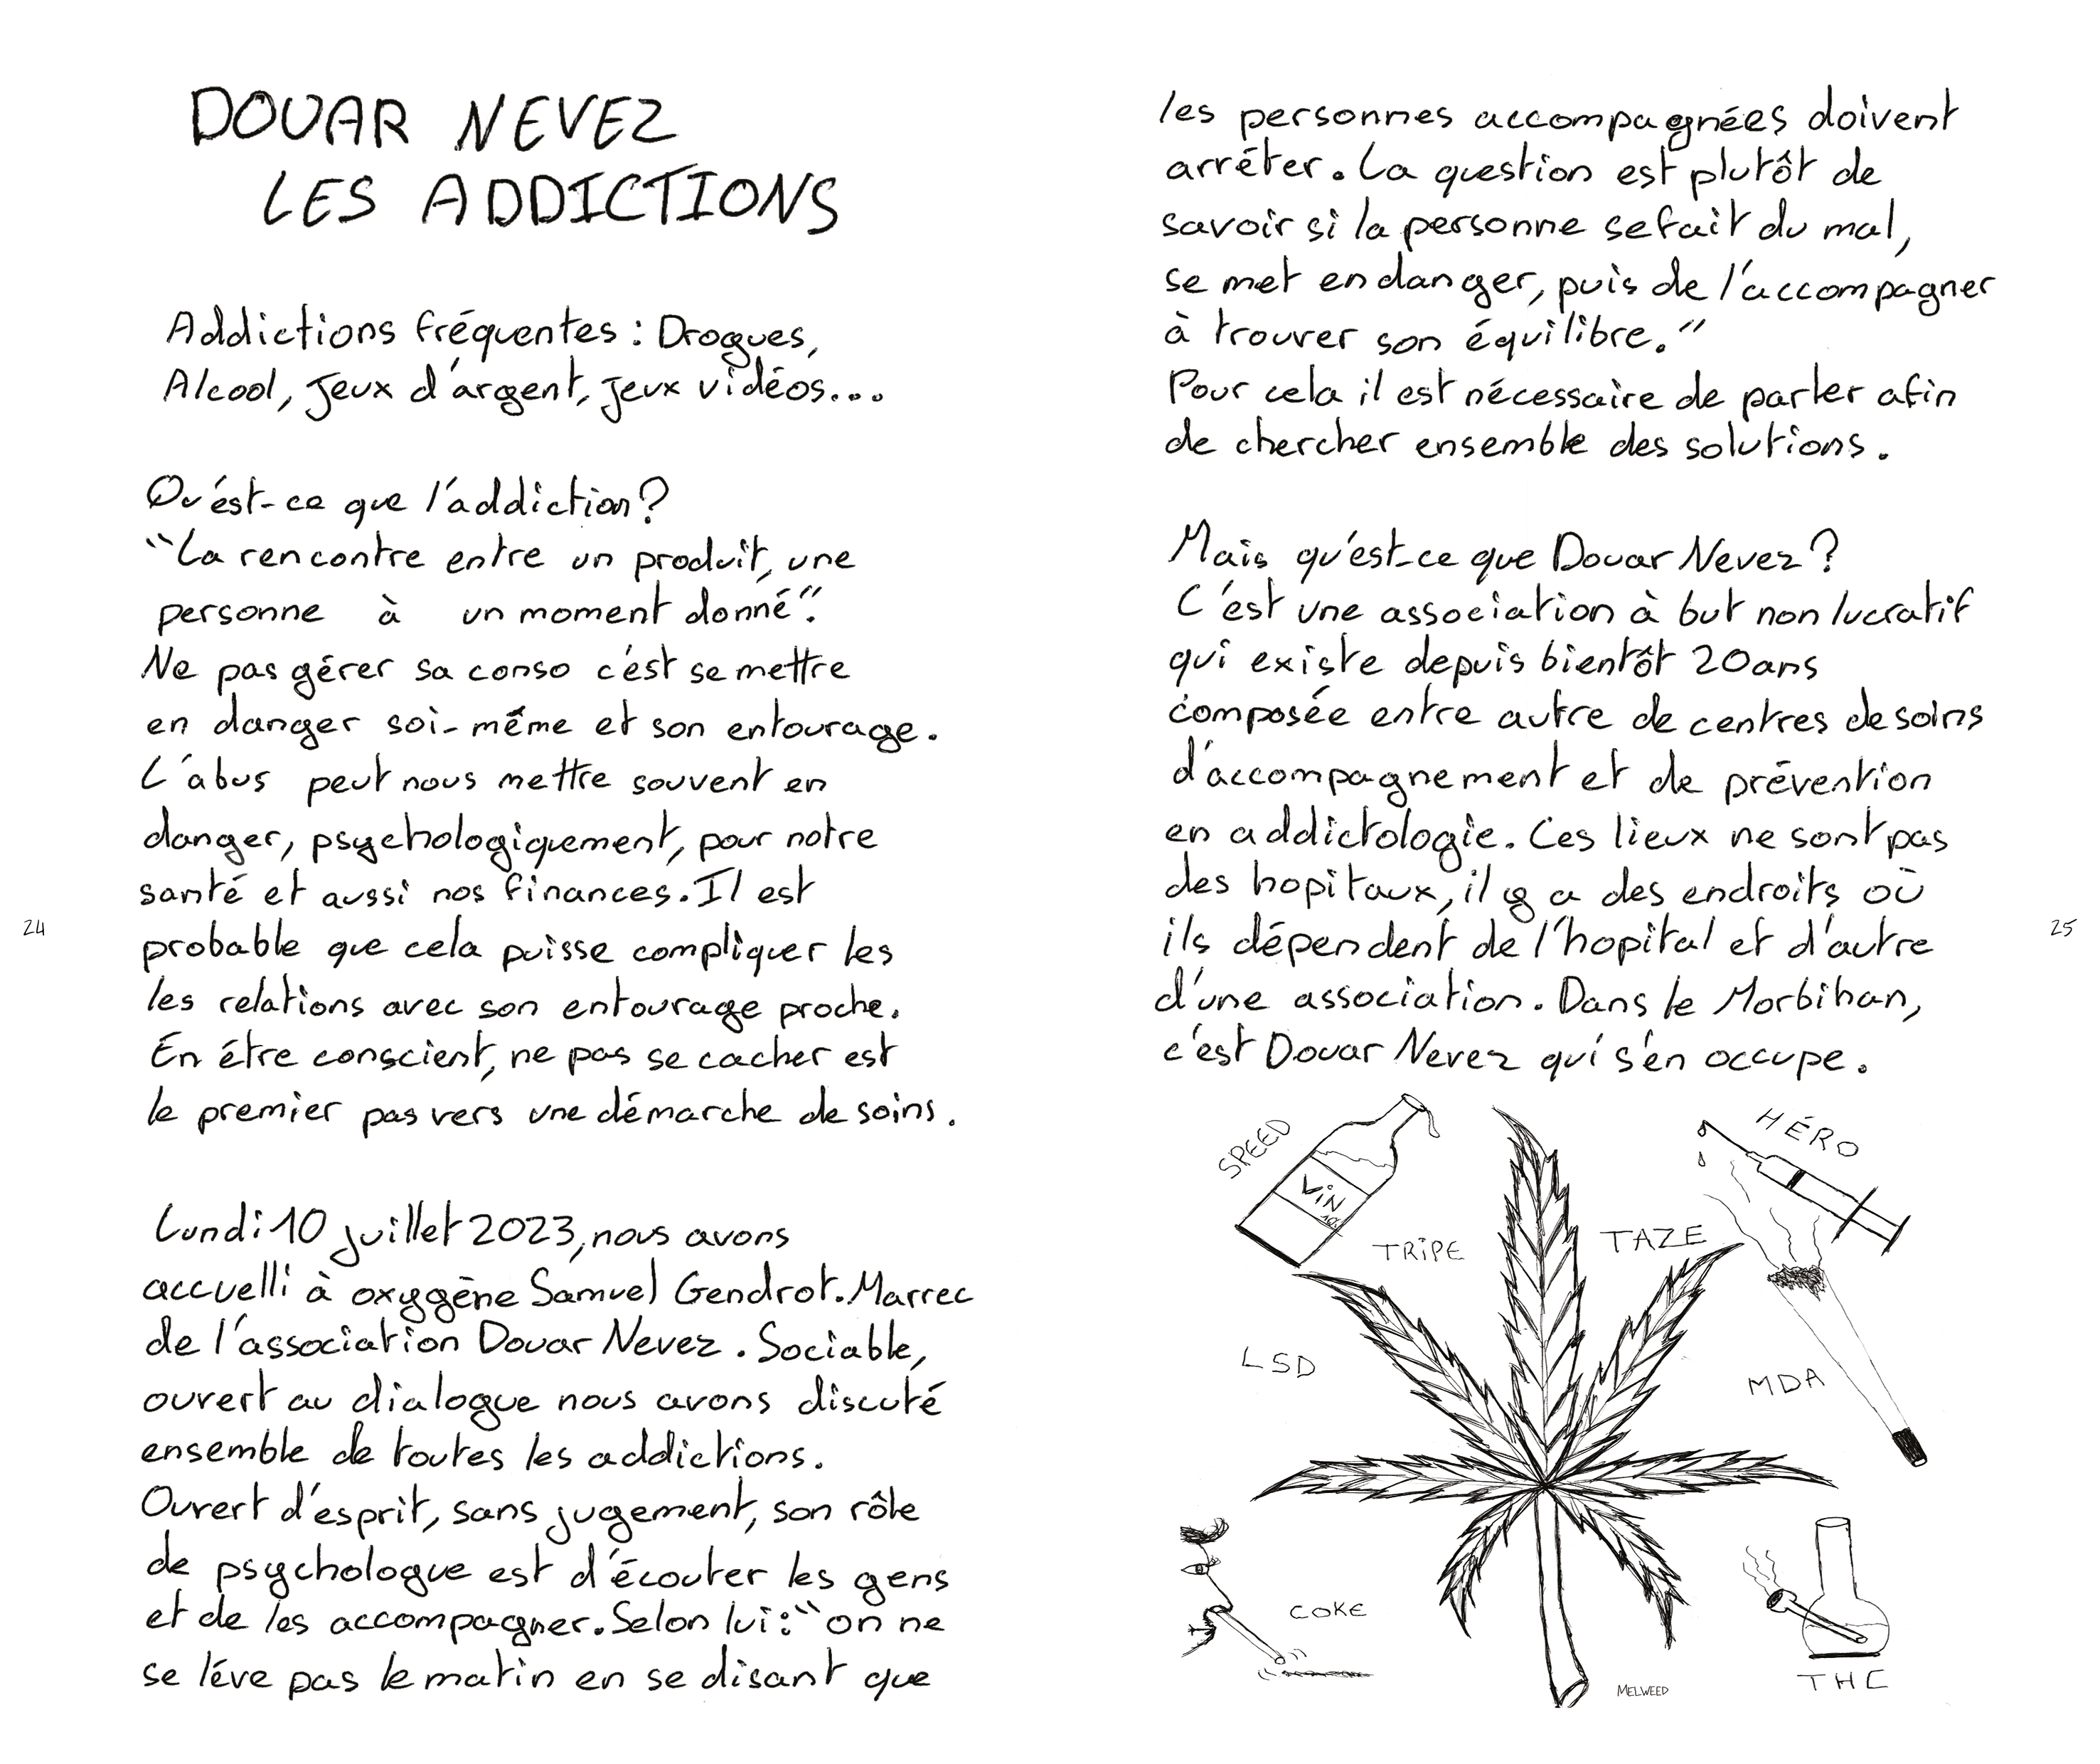 DOUAR NEVEZ
LES ADDICTIONS
Addictions fréquentes : Drogues,
Alcool, jeux d'argent, jeux vidéos...
Qu'est-ce que l'addiction ?
"La rencontre entre un produit, une
personne à un moment donné".
Ne pas gérer sa conso c'est se mettre
en danger soi-même et son entourage.
L'abus peut nous mettre souvent en
danger, psychologiquement, pour notre
santé et aussi nos finances. Il est
probable que cela puisse compliquer les
les relations avec son entourage proche.
En être conscient, ne pas se cacher est
le premier pas vers une démarche de soins.
Lundi 10 juillet 2023, nous avons
accuelli à oxygène Samuel Gendrot.Marrec
de l'association Douar Nevez. Sociable,
ouvert au dialogue nous avons discuté
ensemble de toutes les addictions.
Ouvert d'esprit, sans jugement, son rôle
de psychologue est d'écouter les gens
et de les accompagner. Selon lui : "on ne
se léve pas le matin en se disant que
24
les personnes accompagnées doivent
arrêter. La question est plutôt de
savoir si la personne se fait du mal,
se met en danger, puis de l'accompagner
à trouver son équilibre."
Pour cela il est nécessaire de parler afin
de chercher ensemble des solutions.
Mais qu'est-ce que Douar Nevez ?
C'est une association à but non lucratif
qui existe depuis bientôt 20 ans
composée entre autre de centres de soins
d'accompagnement et de prévention
en addictologie. Ces lieux ne sont pas
des hopitaux, il y a des endroits où
ils dépendent de l'hopital et d'autre
d'une association. Dans le Morbihan,
c'est Douar Nevez qui s'en occupe.
25
SPEED
VIN
HÉRO
TRIPE
TAZE
LSD
MDA
COKE
THC
MELWEED